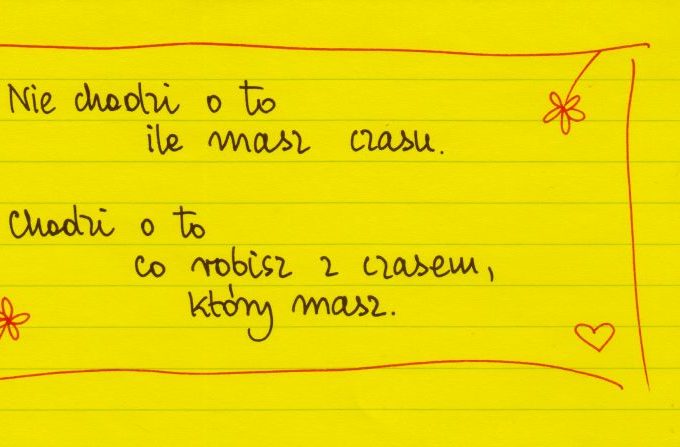 Nie chodzi o to
ile masz czasu.
Chodzi o to
co robisz z czasem,
który masz.